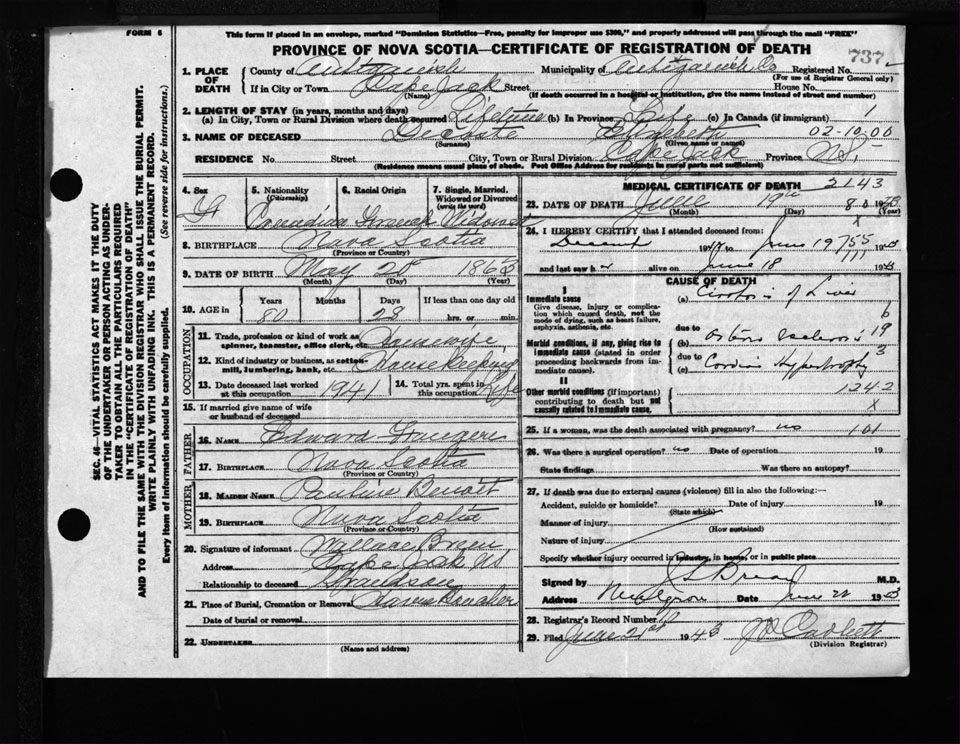 FORM 6
This form if placed in an envelope, marked "Dominion Statistics—Free, penalty for improper use $300," and properly addressed will pass through the mail "FREE"
PROVINCE OF NOVA SCOTIA—CERTIFICATE OF REGISTRATION OF DEATH
737
1. PLACE OF DEATH
County of Antigonish Municipality of Antigonish Co Registered No.
(For use of Registrar General only)
If in City or Town Cape Jack Street House No.
(Name) (If death occurred in a hospital or institution, give the name instead of street and number)
2. LENGTH OF STAY (in years, months and days)
(a) In City, Town or Rural Division where death occurred Lifetime (b) In Province Life (c) In Canada (if immigrant) 1
3. NAME OF DECEASED DeCoste Elizabeth 02-10.00
(Surname) (Given name or names)
RESIDENCE No. Street City, Town or Rural Division Cape Jack Province N.S.
(Residence means usual place of abode. Post Office Address for residents in rural parts not sufficient)
4. Sex F
5. Nationality (Citizenship) Canadian
6. Racial Origin French
7. Single, Married, Widowed or Divorced (write the word) Widowed
8. BIRTHPLACE Nova Scotia
(Province or Country)
9. DATE OF BIRTH May 28 186
(Month) (Day) (Year)
10. AGE in Years Months Days If less than one day old
80 28 hrs. or min.
OCCUPATION
11. Trade, profession or kind of work as spinner, teamster, office clerk, etc. Housewife
12. Kind of industry or business, as cotton-mill, lumbering, bank, etc. Housekeeping
13. Date deceased last worked at this occupation 1941
14. Total yrs. spent in this occupation Life
15. If married give name of wife or husband of deceased
FATHER
16. NAME Edward
17. BIRTHPLACE Nova Scotia
(Province or Country)
MOTHER
18. MAIDEN NAME Pauline Benoit
19. BIRTHPLACE Nova Scotia
(Province or Country)
20. Signature of informant Wallace
Address Cape Jack NS
Relationship to deceased Grandson
21. Place of Burial, Cremation or Removal Havre Boucher
Date of burial or removal
22. UNDERTAKER
(Name and address)
MEDICAL CERTIFICATE OF DEATH 2143
23. DATE OF DEATH June 19th 1943
(Month) (Day) 80
24. I HEREBY CERTIFY that I attended deceased from:
to June 19 1943
755
and last saw h alive on June 18 1943
CAUSE OF DEATH
I
Immediate cause
Give disease, injury or complication which caused death, not the mode of dying, such as heart failure, asphyxia, asthenia, etc.
(a) Cirrhosis of Liver
6
due to
Morbid conditions, if any, giving rise to immediate cause (stated in order proceeding backwards from immediate cause).
(b) Arterio Sclerosis 19
due to
(c) Cardiac Hypertrophy 3
II
Other morbid conditions (if important) contributing to death but not causally related to immediate cause.
1242
X
25. If a woman, was the death associated with pregnancy? no 101
26. Was there a surgical operation? no Date of operation 19
State findings Was there an autopsy?
27. If death was due to external causes (violence) fill in also the following:—
Accident, suicide or homicide? Date of injury 19
(State which)
Manner of injury
(How sustained)
Nature of injury
Specify whether injury occurred in industry, in home, or in public place
Signed by M.D.
Address Date June 22 1943
28. Registrar's Record Number
29. Filed June 21st 1943
(Division Registrar)
SEC. 46—VITAL STATISTICS ACT MAKES IT THE DUTY OF THE UNDERTAKER OR PERSON ACTING AS UNDERTAKER TO OBTAIN ALL THE PARTICULARS REQUIRED IN THE "CERTIFICATE OF REGISTRATION OF DEATH" AND TO FILE THE SAME WITH THE DIVISION REGISTRAR WHO SHALL ISSUE THE BURIAL PERMIT.
WRITE PLAINLY WITH UNFADING INK. THIS IS A PERMANENT RECORD.
Every item of information should be carefully supplied. (See reverse side for instructions.)